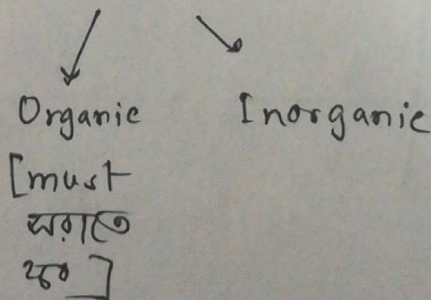 Organic Inorganic
[must
সরাতে
হবে]